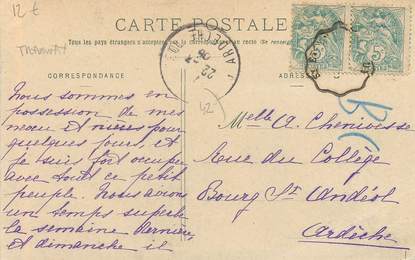 12 €
CARTE POSTALE
Tous les pays étrangers n'acceptent pas
au recto (Se renseigner
CORRESPONDANCE
22
42
Nous sommes en
possession de mes
neveu et nièces pour
quelques jours, et
je suis fort occupée
avec tout ce petit
peuple. Nous avions
un temps superbe
la semaine dernière,
et dimanche il
Melle A. Chenivesse
Rue du Collège
Bourg St Andéol
Ardèche